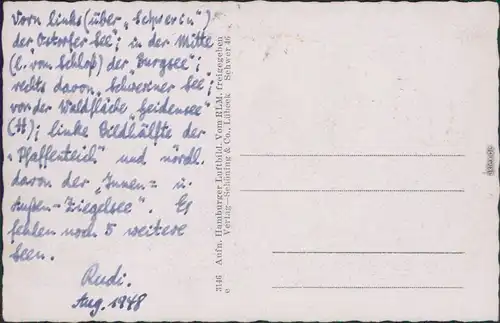 Vorn links (über „Schwerin")
der „Ostorfer See"; in der Mitte
(l. vom Schloß) der „Burgsee";
rechts davon „Schweriner See";
vor der Waldfläche „Heidensee"
(H); linke Bildhälfte der
„Pfaffenteich" und nördl.
davon der „Innen- u.
Außen-Ziegelsee". Es
fehlen noch 5 weitere
Seen.
Rudi.
Aug. 1948
3146 Aufn. Hamburger Luftbild. Vom RLM. freigegeben
e Verlag—Schöning & Co., Lübeck Schwer 46